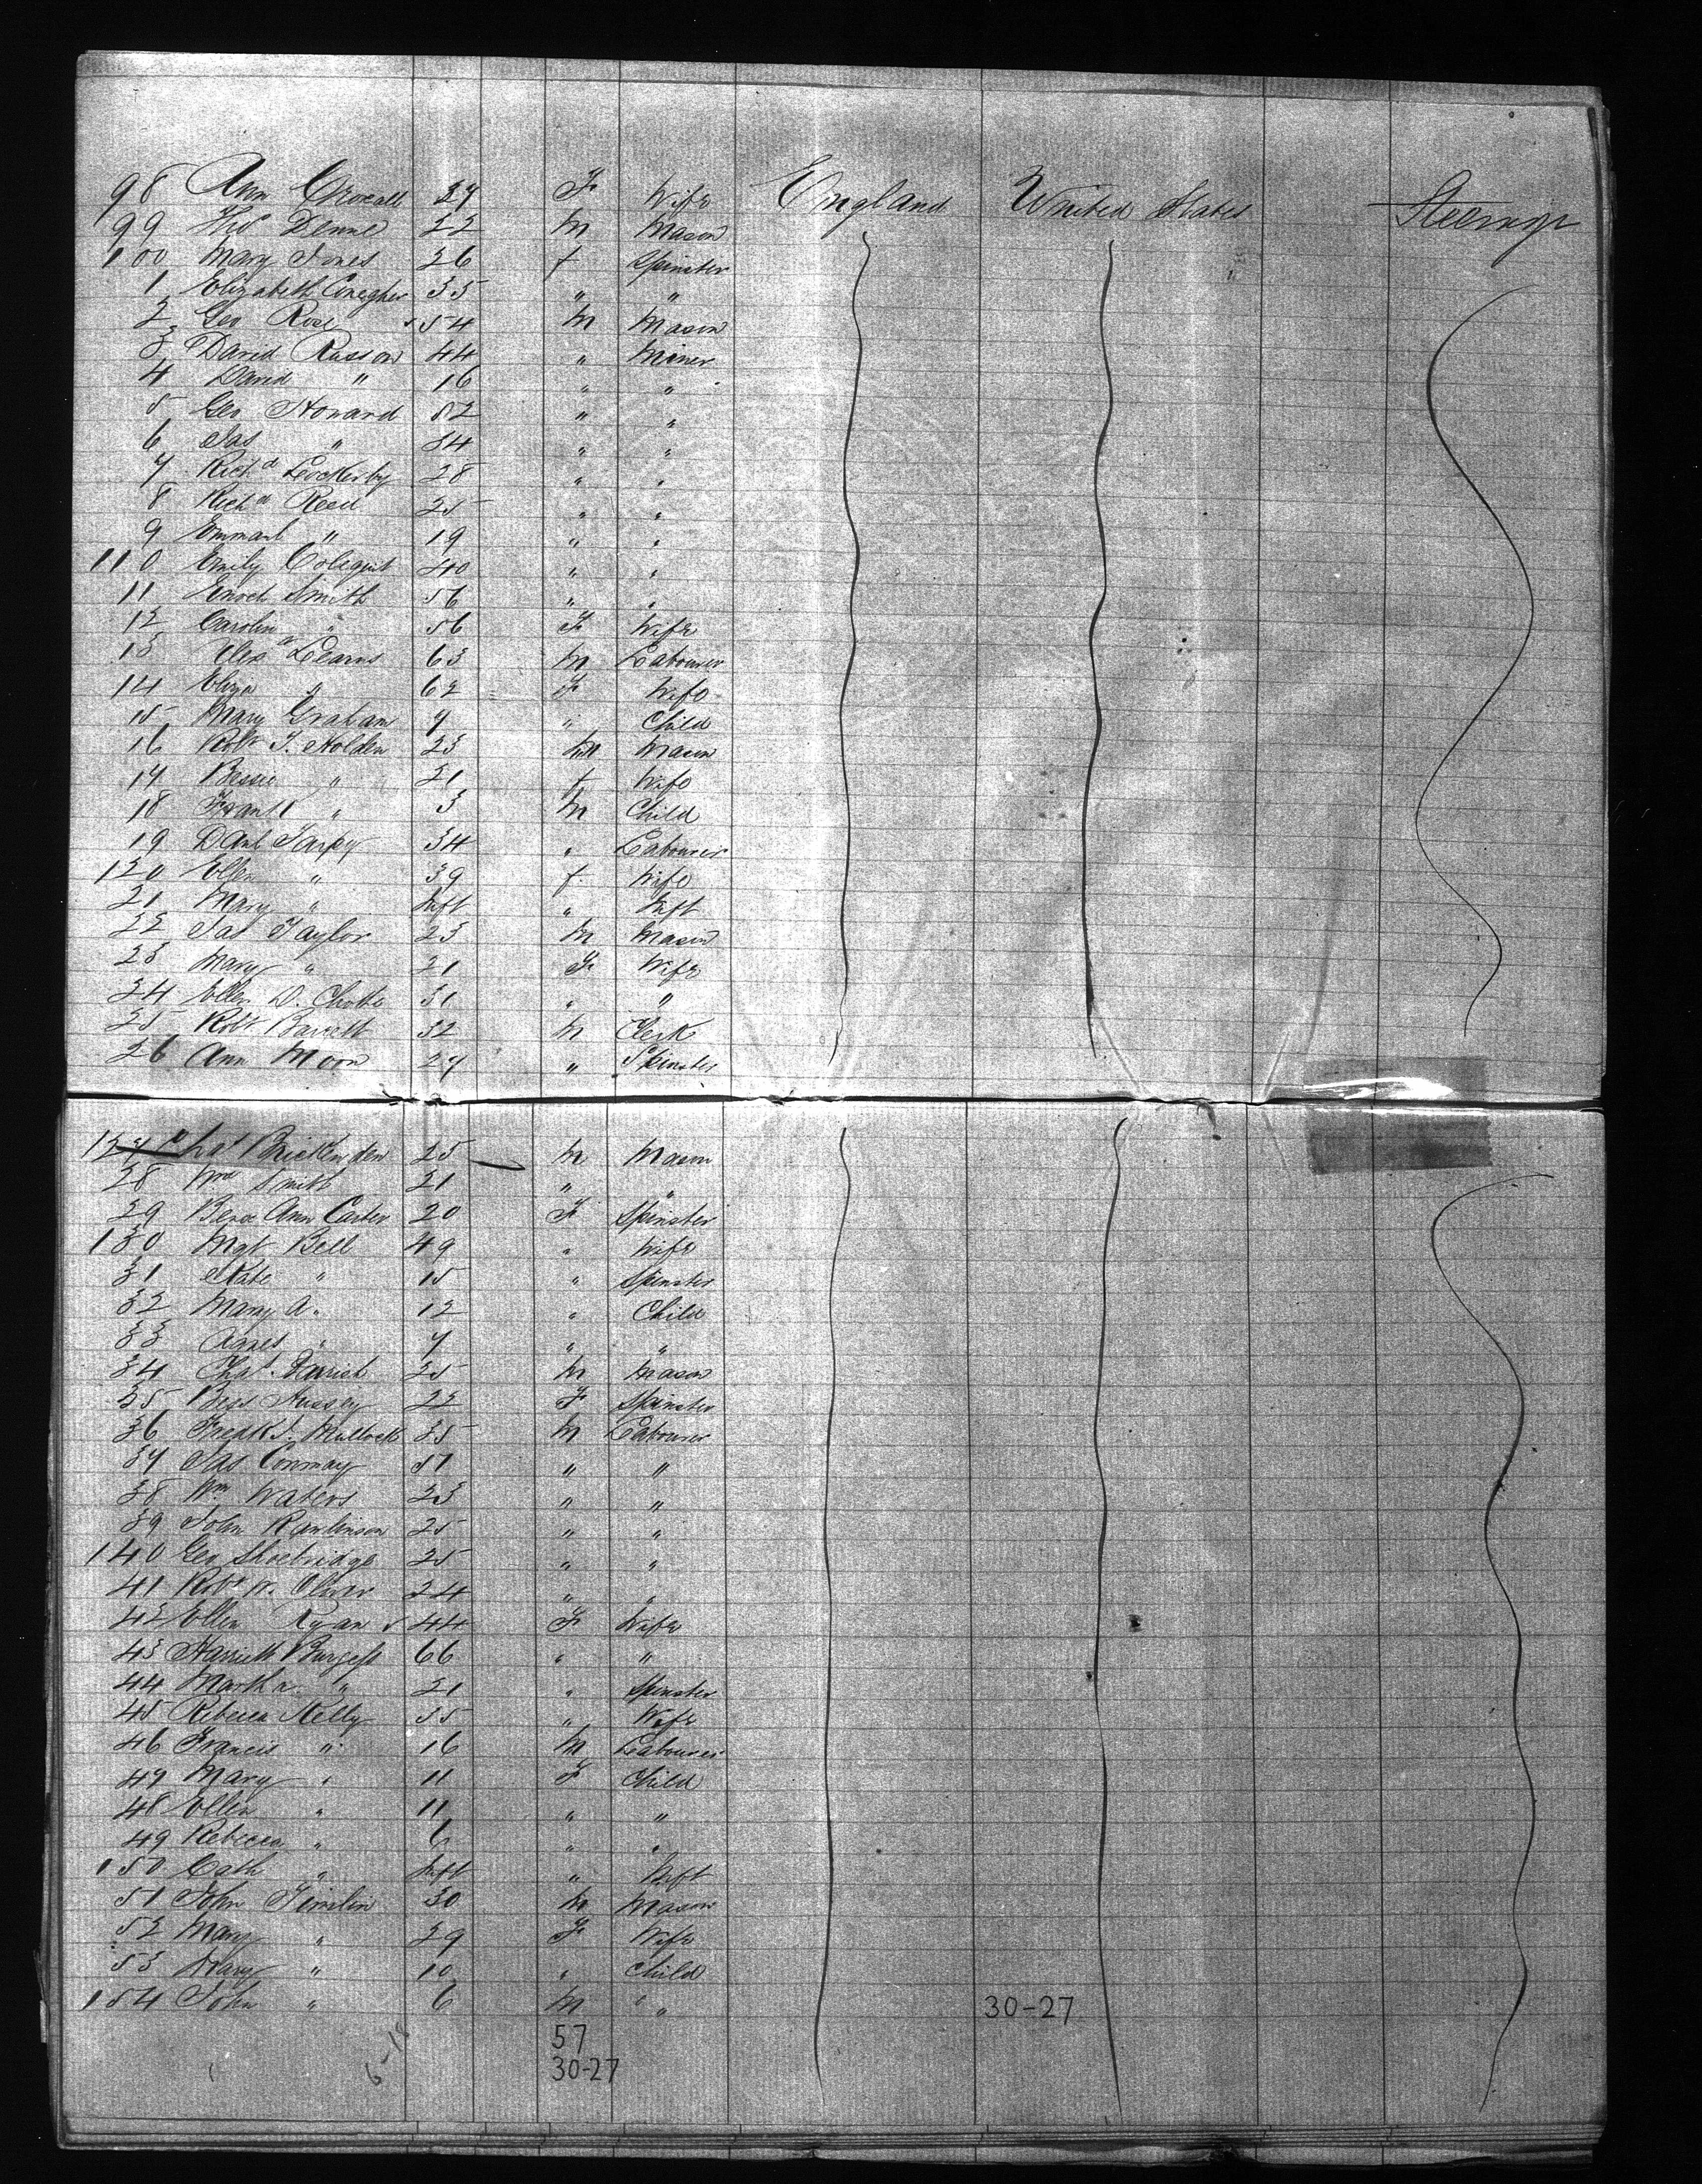 98 Ann Croxall 27 F Wife England United States Steerage
99 Tho Denne 22 M Mason
100 Mary Jones 26 f Spinster
1 Elizabeth 35 " "
2 Geo Rose 54 M Mason
3 David Russon 44 " Miner
4 David " 16 " "
5 Geo Howard 52 " "
6 Jas " 34 " "
7 Richd Lockerby 28 " "
8 Richd Reed 25 " "
9 " 19 " "
110 Emily 40 " "
11 Enoch Smith 56 " "
12 Carolin " 56 F Wife
13 63 M Labourer
14 Eliza " 62 F Wife
15 Mary Graham 7 " Child
16 Robt T. Holden 23 M Mason
17 Bessie " 21 f Wife
18 Frank " 3 M Child
19 Danl Tarpey 34 " Labourer
120 Ellen " 39 f Wife
21 Mary " Inft " Inft
22 Jas Taylor 23 M Mason
23 Mary " 21 F Wife
24 Ellen D. 31 " "
25 Robt 32 M Clerk
26 Ann Moon 27 " Spinster
127 Chas Brickenden 25 M Mason
28 Wm Smith 21 " "
29 Ann Carter 20 F Spinster
130 Mgt Bell 49 " Wife
31 Kate " 15 " Spinster
32 Mary A " 12 " Child
33 Agnes " 7 " "
34 Chas Parish 25 M Mason
35 Bess Hussey 22 F Spinster
36 Fredk J. Mullock 35 M Labourer
37 Jas Conway 51 " "
38 Wm Waters 23 " "
39 John Rawlinson 25 " "
140 Geo Shoebridge 25 " "
41 Robt W. Oliver 24 " "
42 Ellen Ryan 44 F Wife
43 Harriett Burgess 66 " "
44 Martha " 21 " Spinster
45 Rebecca Kelly 35 " Wife
46 Francis " 16 M Labourer
47 Mary " 11 F Child
48 Ellen " 11 " "
49 Rebecca " 6 " "
150 Cath " Inft " Inft
51 John Timlin 30 M Mason
52 Mary " 29 F Wife
53 Mary " 10 " Child
154 John " 6 M " "
30-27
57
30-27
6-18